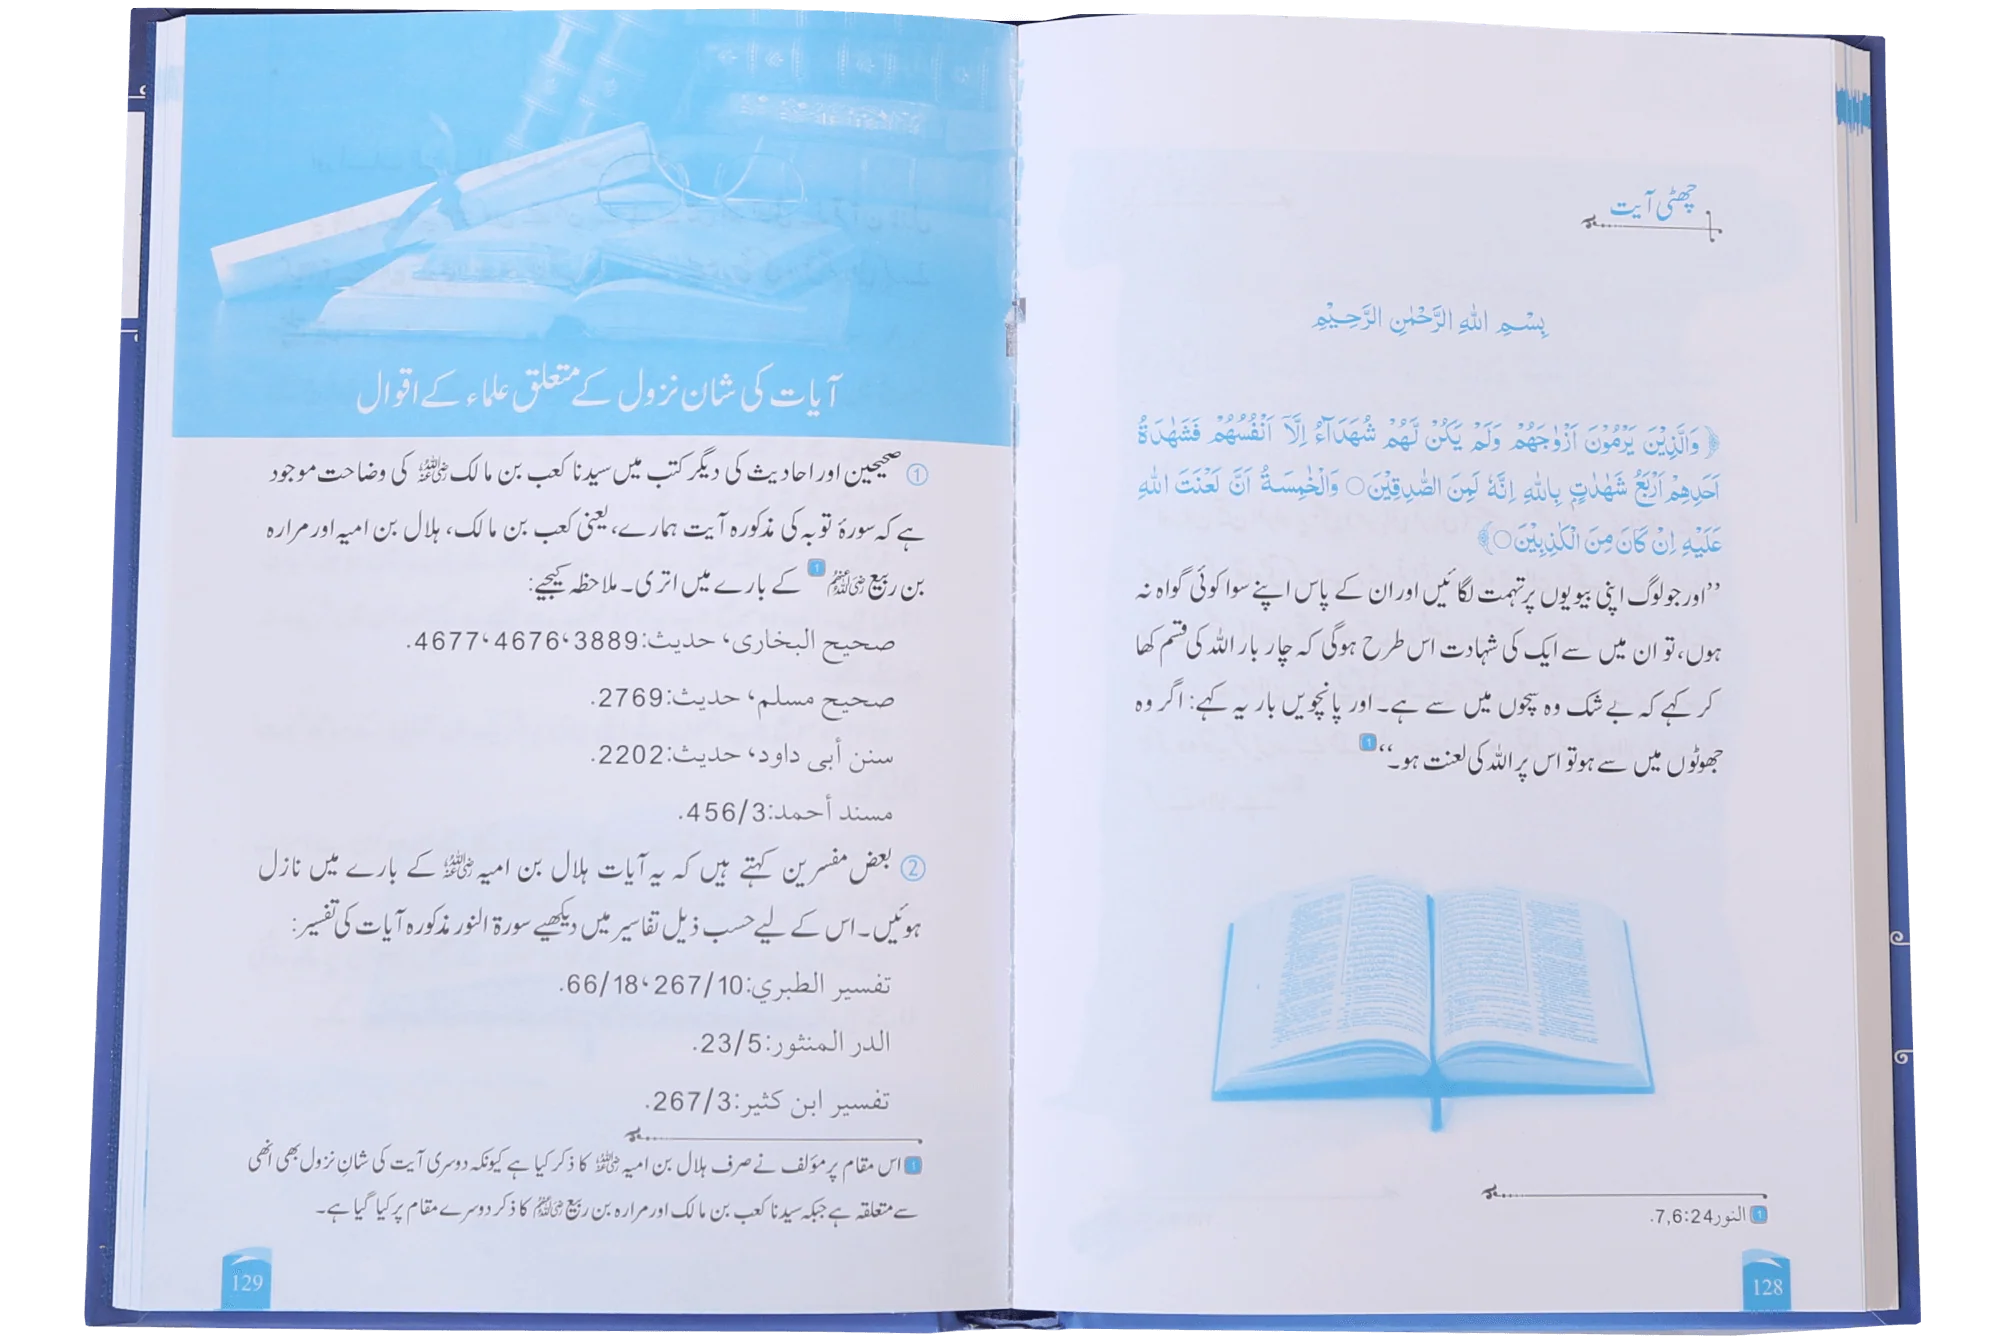 چھٹی آیت
بِسْمِ اللّٰهِ الرَّحْمٰنِ الرَّحِيْمِ
﴿ وَالَّذِيْنَ يَرْمُوْنَ اَزْوَاجَهُمْ وَلَمْ يَكُنْ لَّهُمْ شُهَدَآءُ اِلَّآ اَنْفُسُهُمْ فَشَهَادَةُ
اَحَدِهِمْ اَرْبَعُ شَهٰدٰتٍۭ بِاللّٰهِ اِنَّهٗ لَمِنَ الصّٰدِقِيْنَ○ وَالْخَامِسَةُ اَنَّ لَعْنَتَ اللّٰهِ
عَلَيْهِ اِنْ كَانَ مِنَ الْكٰذِبِيْنَ○﴾
’’اور جو لوگ اپنی بیویوں پر تہمت لگائیں اور ان کے پاس اپنے سوا کوئی گواہ نہ
ہوں، تو ان میں سے ایک کی شہادت اس طرح ہوگی کہ چار بار اللہ کی قسم کھا
کر کہے کہ بے شک وہ سچوں میں سے ہے۔ اور پانچویں بار یہ کہے: اگر وہ
جھوٹوں میں سے ہو تو اس پر اللہ کی لعنت ہو۔‘‘ 1
1 النور 7,6:24.
128
آیات کی شان نزول کے متعلق علماء کے اقوال
1 صحیحین اور احادیث کی دیگر کتب میں سیدنا کعب بن مالک رضی اللہ عنہ کی وضاحت موجود
ہے کہ سورۂ توبہ کی مذکورہ آیت ہمارے، یعنی کعب بن مالک، ہلال بن امیہ اور مرارہ
بن ربیع رضی اللہ عنہم 1 کے بارے میں اتری۔ ملاحظہ کیجیے:
صحيح البخاری، حديث: 3889، 4676، 4677.
صحيح مسلم، حديث: 2769.
سنن أبی داود، حديث: 2202.
مسند أحمد: 456/3.
2 بعض مفسرین کہتے ہیں کہ یہ آیات ہلال بن امیہ رضی اللہ عنہ کے بارے میں نازل
ہوئیں۔ اس کے لیے حسب ذیل تفاسیر میں دیکھیے سورۃ النور مذکورہ آیات کی تفسیر:
تفسير الطبري: 267/10، 66/18.
الدر المنثور: 23/5.
تفسير ابن كثير: 267/3.
1 اس مقام پر مؤلف نے صرف ہلال بن امیہ رضی اللہ عنہ کا ذکر کیا ہے کیونکہ دوسری آیت کی شانِ نزول بھی انھی
سے متعلقہ ہے جبکہ سیدنا کعب بن مالک اور مرارہ بن ربیع رضی اللہ عنہم کا ذکر دوسرے مقام پر کیا گیا ہے۔
129